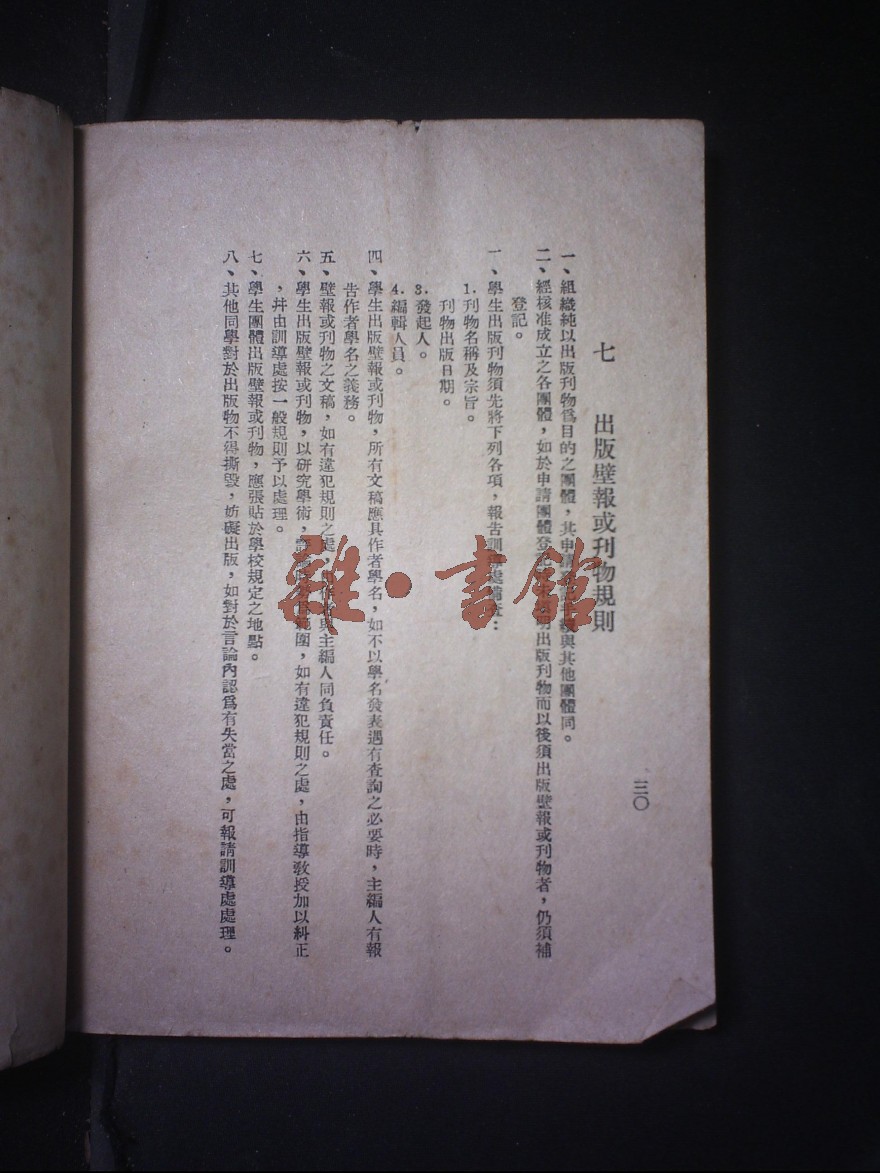 三〇
七 出版壁報或刊物規則
一、組織純以出版刊物爲目的之團體，其申請登記手續與其他團體同。
二、經核准成立之各團體，如於申請團體登記時未聲明出版刊物而以後須出版壁報或刊物者，仍須補
登記。
一、學生出版刊物須先將下列各項，報告訓導處備查：
1.刊物名稱及宗旨。
刊物出版日期。
3.發起人。
4.編輯人員。
四、學生出版壁報或刊物，所有文稿應具作者學名，如不以學名發表遇有查詢之必要時，主編人有報
告作者學名之義務。
五、壁報或刊物之文稿，如有違犯規則之處，與主編人同負責任。
六、學生出版壁報或刊物，以研究學術，範圍，如有違犯規則之處，由指導教授加以糾正
，幷由訓導處按一般規則予以處理。
七、學生團體出版壁報或刊物，應張貼於學校規定之地點。
八、其他同學對於出版物不得撕毀，妨礙出版，如對於言論內認爲有失當之處，可報請訓導處處理。
雜·書館